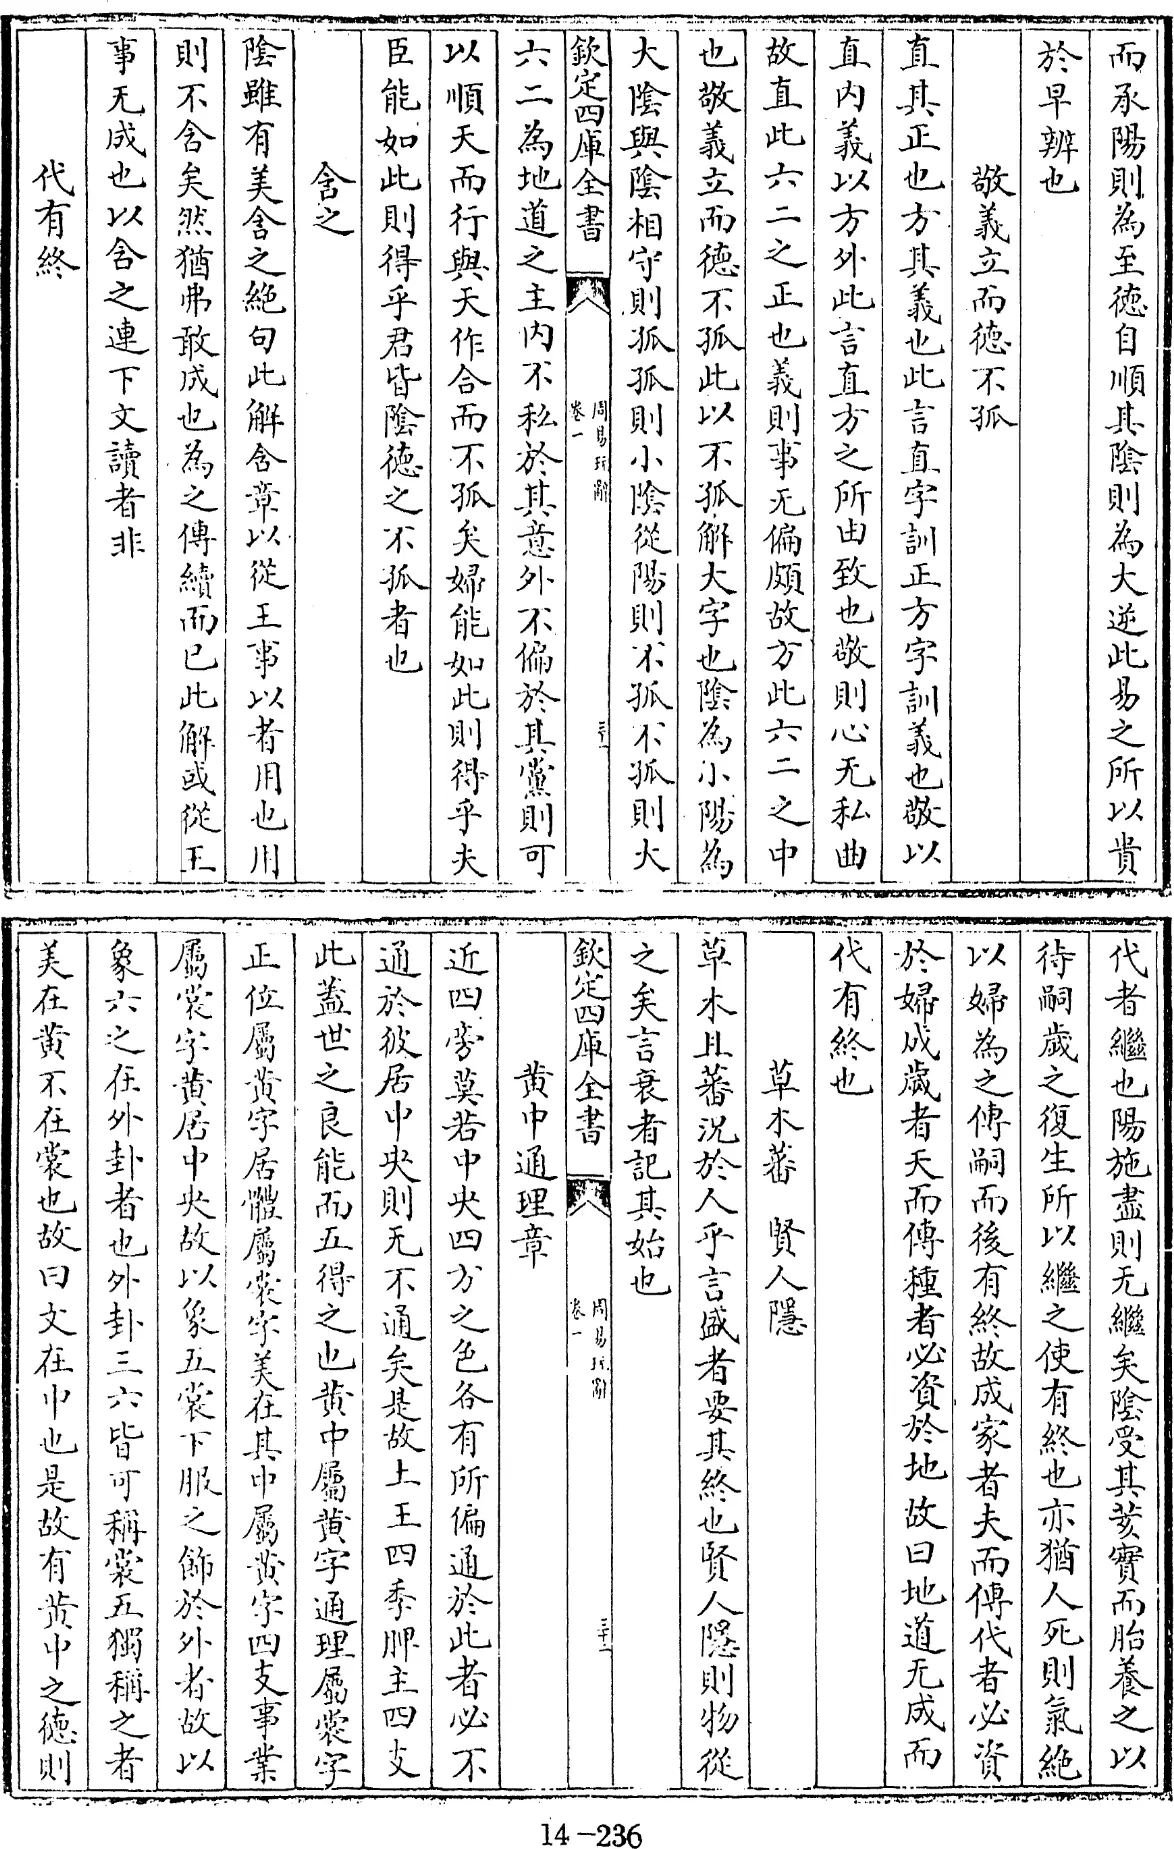 而承陽則為至徳自順其陰則為大逆此易之所以貴
於早辨也
敬義立而徳不孤
直其正也方其義也此言直字訓正方字訓義也敬以
直内義以方外此言直方之所由致也敬則心无私曲
故直此六二之正也義則事无偏頗故方此六二之中
也敬義立而徳不孤此以不孤解大字也陰為小陽為
大陰與陰相守則孤孤則小陰從陽則不孤不孤則大
欽定四庫全書 周易玩辭 卷一 三十一
六二為地道之主内不私於其意外不偏於其黨則可
以順天而行與天作合而不孤矣婦能如此則得乎夫
臣能如此則得乎君皆陰徳之不孤者也
含之
陰雖有美含之絶句此解含章以從王事以者用也用
則不含矣然猶弗敢成也為之傳續而已此解或從王
事无成也以含之連下文讀者非
代有終
代者繼也陽施盡則无繼矣陰受其荄實而胎養之以
待嗣歲之復生所以繼之使有終也亦猶人死則氣絶
以婦為之傳嗣而後有終故成家者夫而傳代者必資
於婦成歲者天而傳種者必資於地故曰地道无成而
代有終也
草木蕃 賢人隱
草木且蕃況於人乎言盛者要其終也賢人隱則物從
之矣言衰者記其始也
欽定四庫全書 周易玩辭 卷一 三十二
黄中通理章
近四旁莫若中央四方之色各有所偏通於此者必不
通於彼居中央則无不通矣是故土王四季脾主四支
此蓋世之良能而五得之也黄中屬黄字通理屬裳字
正位屬黄字居體屬裳字美在其中屬黄字四支事業
屬裳字黄居中央故以象五裳下服之飾於外者故以
象六之在外卦者也外卦三六皆可稱裳五獨稱之者
美在黄不在裳也故曰文在中也是故有黄中之徳則
14-236